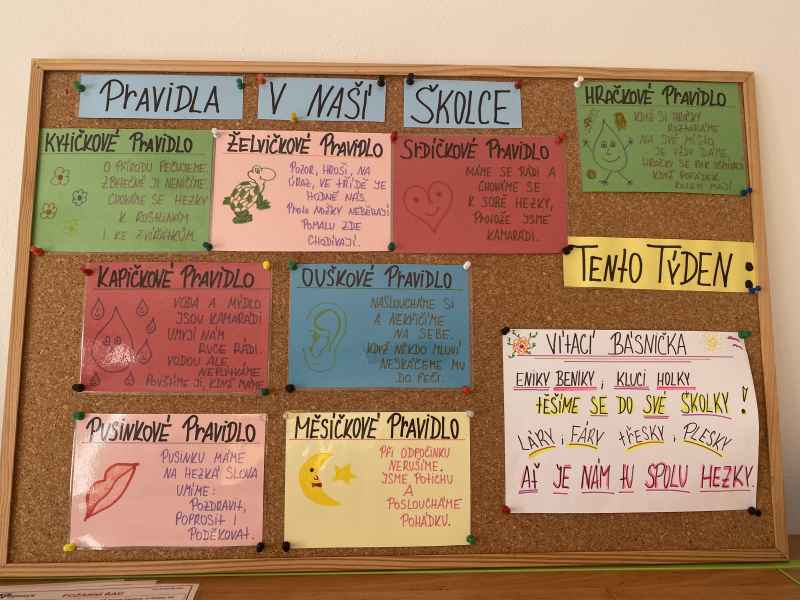 PRAVIDLA
V NAŠÍ
ŠKOLCE
KYTIČKOVÉ PRAVIDLO
O PŘÍRODU PEČUJEME.
ZBYTEČNĚ JI NENIČÍME.
CHOVÁME SE HEZKY
K ROSTLINÁM
I KE ZVÍŘÁTKŮM.
ŽELVIČKOVÉ PRAVIDLO
POZOR, HROŠI, NA
ÚRAZ, VE TŘÍDĚ JE
HODNĚ NÁS.
PROTO NOŽKY NEBĚHAJÍ
POMALU ZDE
CHODÍVAJÍ.
SRDÍČKOVÉ PRAVIDLO
MÁME SE RÁDI A
CHOVÁME SE
K SOBĚ HEZKY,
PROTOŽE JSME
KAMARÁDI.
HRAČKOVÉ PRAVIDLO
KDYŽ SI HRAČKY
ROZEBERÁME
NA SVÉ MÍSTO
JE VŽDY DÁME.
HRAČKY SE PAK USMÍVAJÍ
KDYŽ POŘÁDEK
KOLEM MAJÍ.
TENTO TÝDEN
KAPIČKOVÉ PRAVIDLO
VODA A MÝDLO
JSOU KAMARÁDI
UMYJÍ NÁM
RUCE RÁDI.
VODOU ALE
NEPLÝTVÁME
POUŠTÍME JI, KDYŽ MÁME
OUŠKOVÉ PRAVIDLO
NASLOUCHÁME SI
A NEKŘIČÍME
NA SEBE.
KDYŽ NĚKDO MLUVÍ
NESKÁČEME MU
DO ŘEČI.
PUSINKOVÉ PRAVIDLO
PUSINKU MÁME
NA HEZKÁ SLOVA
UMÍME:
POZDRAVIT,
POPROSIT I
PODĚKOVAT.
MĚSÍČKOVÉ PRAVIDLO
PŘI ODPOČINKU
NERUŠÍME.
JSME POTICHU
A
POSLOUCHÁME
POHÁDKU.
VÍTACÍ BÁSNIČKA
ENIKY BENIKY, KLUCI HOLKY
TĚŠÍME SE DO SVÉ ŠKOLKY!
LÁRY, FÁRY TŘESKY, PLESKY
AŤ JE NÁM TU SPOLU HEZKY.
POŽÁRNÍ ŘÁD